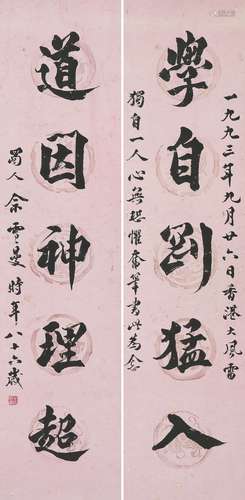 學自剛猛入
一九九三年九月廿六日香港大風雷
獨自一人心無恐懼奮筆書此為念
道因神理超
蜀人余雪曼時年八十六歲